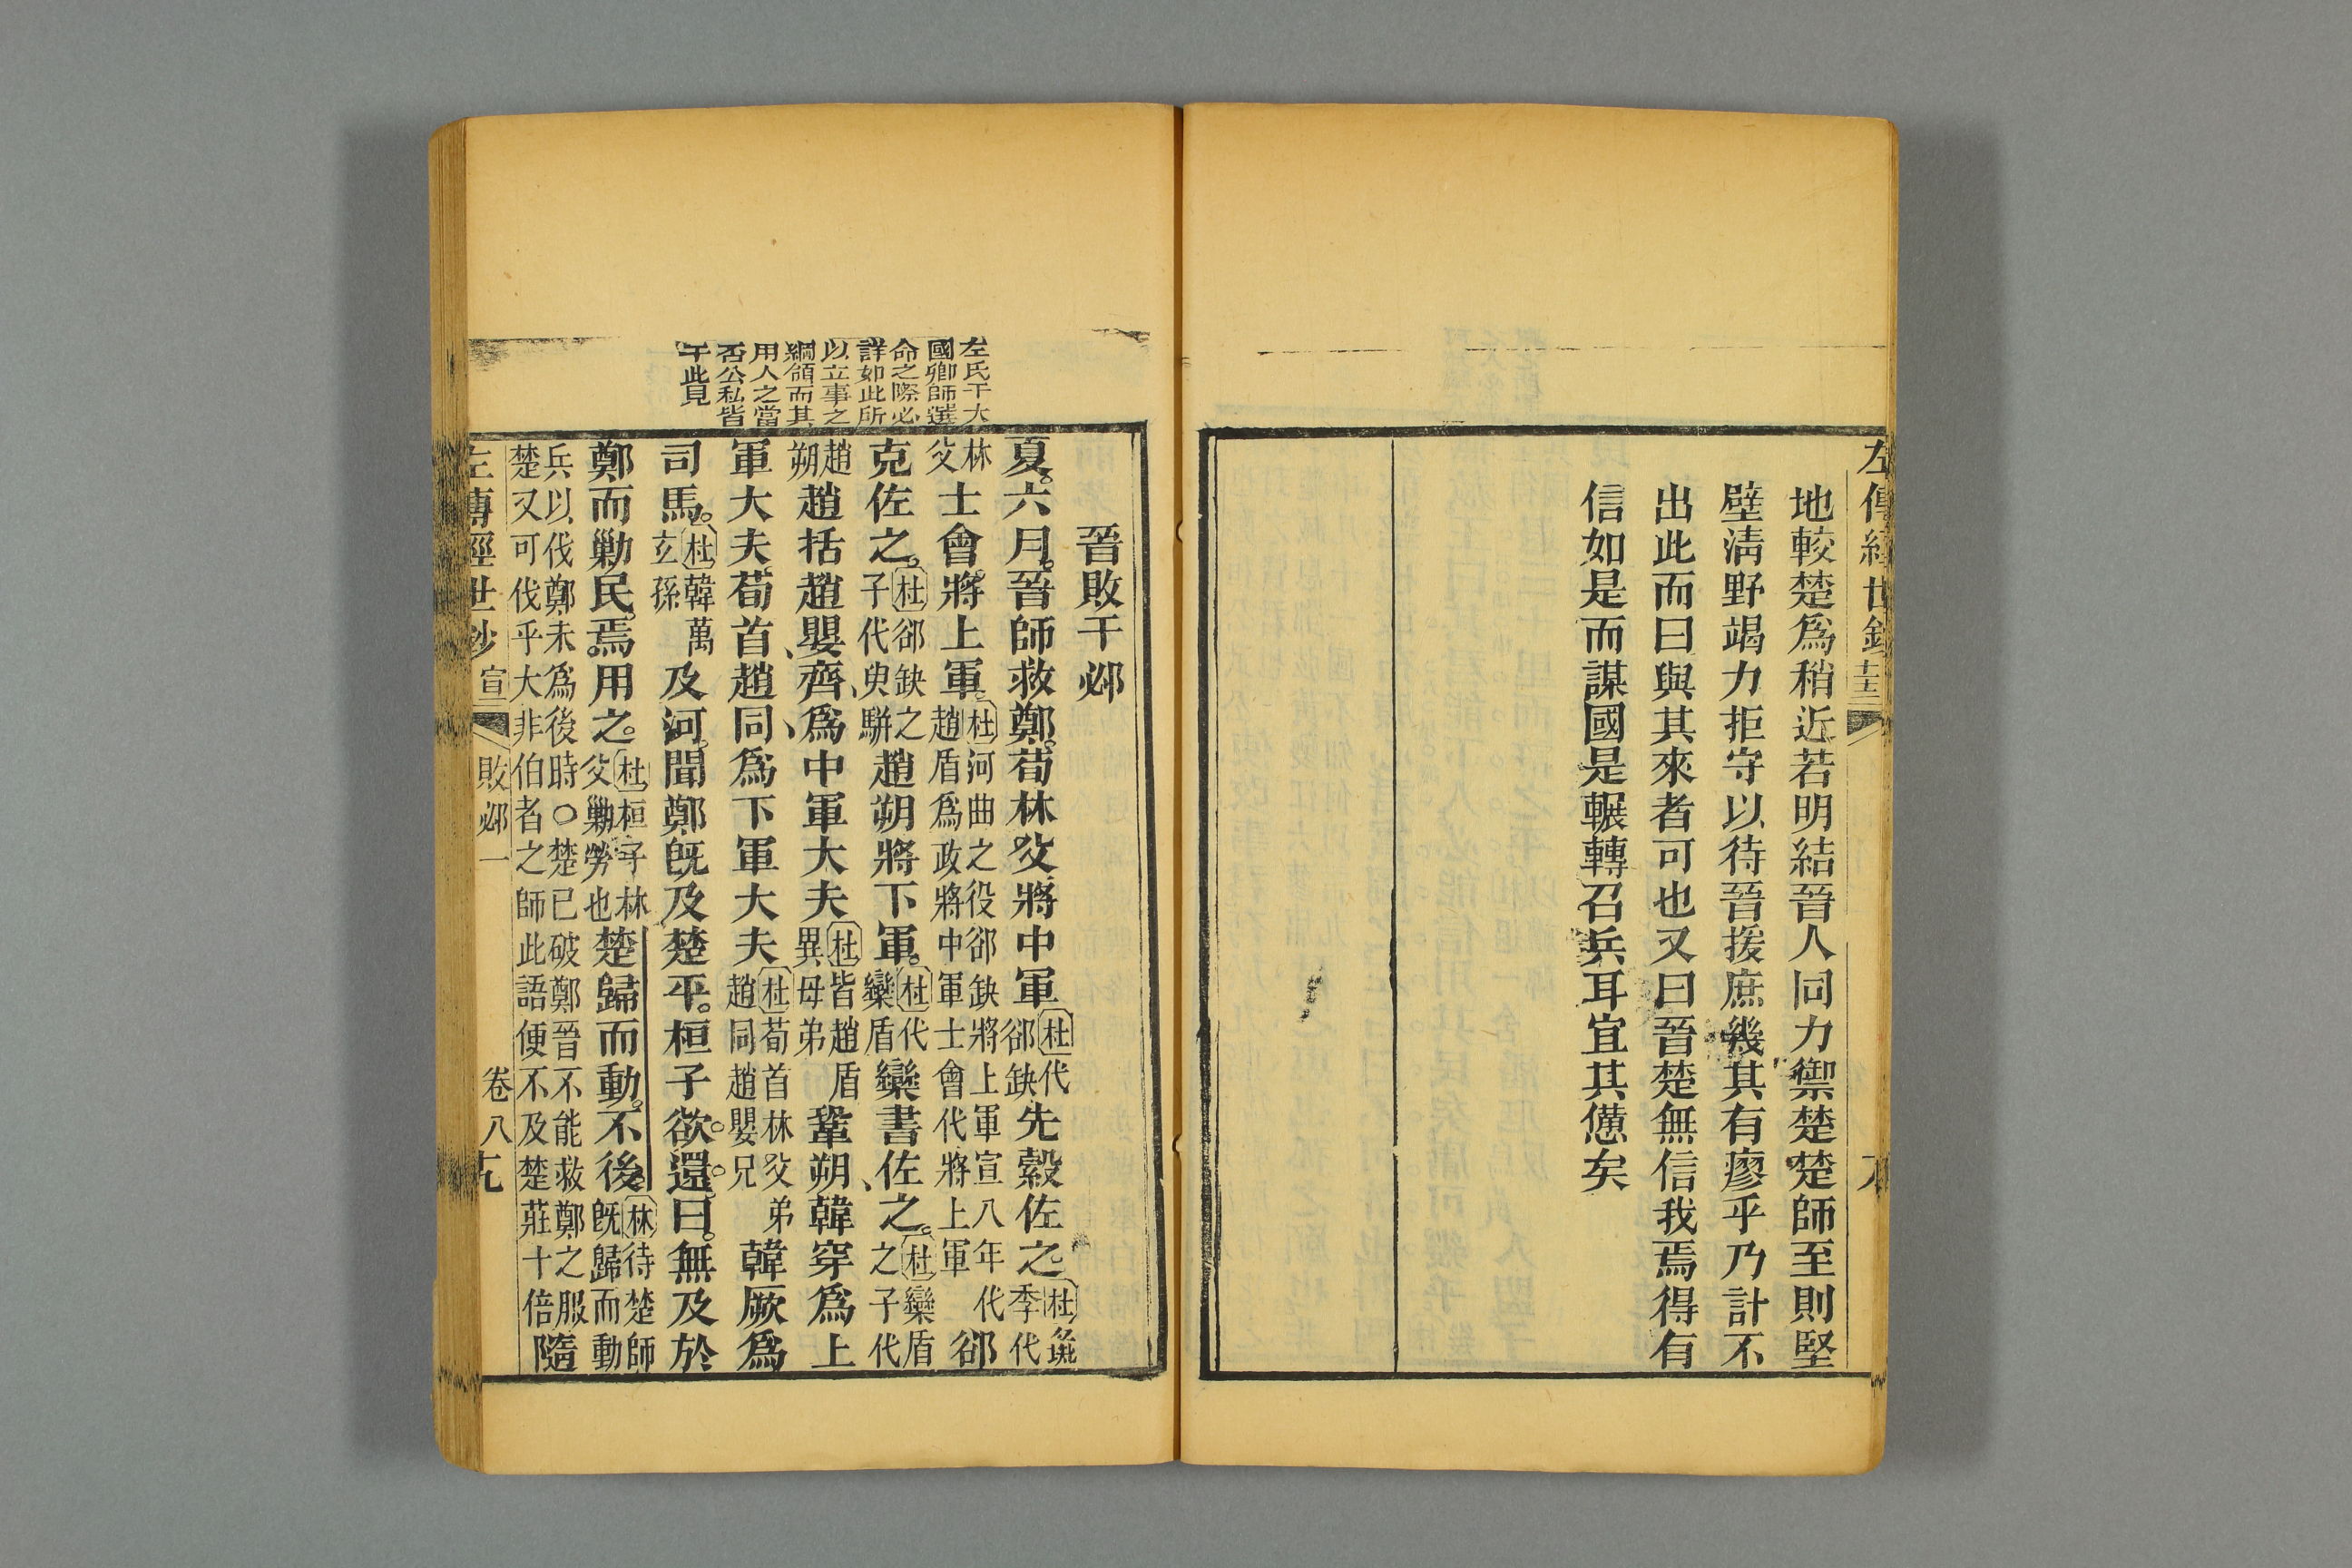 左傳經世鈔
地較楚爲稍近若明結晉人同力禦楚楚師至則堅
壁淸野竭力拒守以待晉援庶幾其有瘳乎乃計不
出此而曰與其來者可也又曰晉楚無信我焉得有
信如是而謀國是輾轉召兵耳宜其憊矣
左氏于大
國卿師選
命之際必
詳如此所
以立事之
綱領而其
用人之當
否公私皆
于此見
晉敗于邲
夏六月晉師救鄭荀林父將中軍杜代郤缺先縠佐之杜季代
林父士會將上軍杜河曲之役郤缺將上軍宣八年代趙盾爲政將中軍士會代將上軍郤
克佐之杜郤缺之子代臾駢趙朔將下軍杜代欒盾欒書佐之杜欒盾之子代
趙朔趙括趙嬰齊爲中軍大夫杜皆趙盾異母弟鞏朔韓穿爲上
軍大夫荀首趙同爲下軍大夫杜荀首林父弟趙同趙嬰兄韓厥爲
司馬杜韓萬玄孫及河聞鄭旣及楚平桓子欲還曰無及於
鄭而勦民焉用之杜桓子林父勦勞也楚歸而動不後林待楚師旣歸而動
兵以伐鄭未爲後時○楚已破鄭晉不能救鄭之服楚又可伐乎大非伯者之師此語便不及楚莊十倍隨
左傳經世鈔 宣 敗邲一 卷八